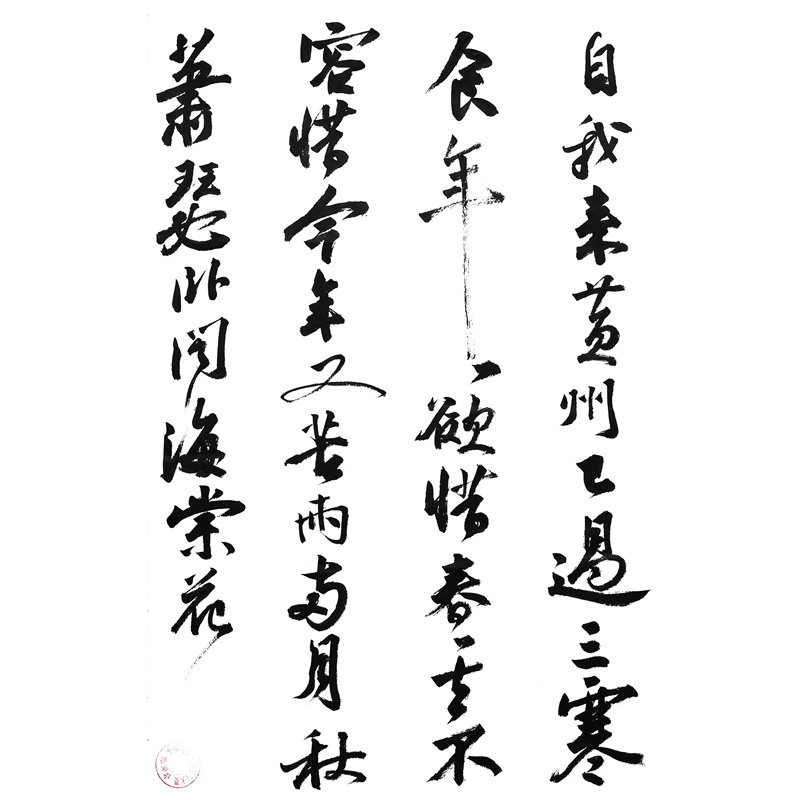 自我来黄州已過三寒
食年丶欲惜春丶去不
容惜今年又苦雨两月秋
蕭瑟卧闻海棠花